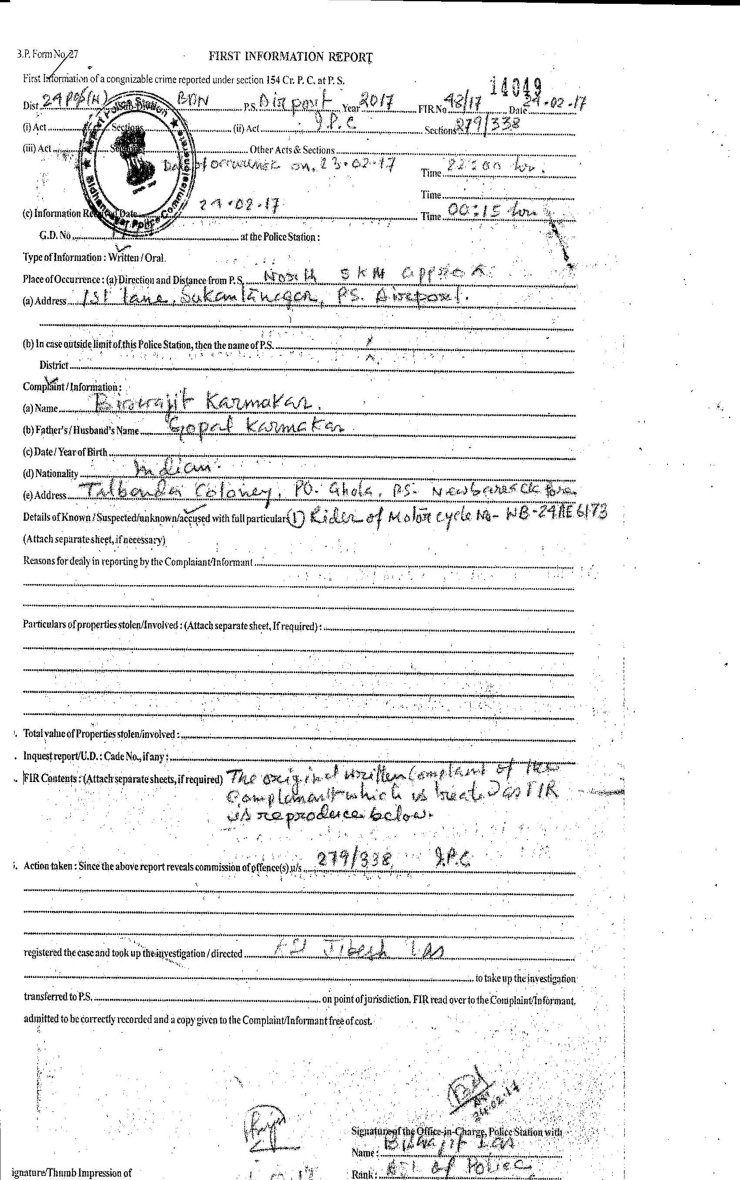 3.P. Form No. 27
FIRST INFORMATION REPORT
First Information of a congnizable crime reported under section 154 Cr. P. C. at P. S.
14049
Dist 24 PGS(N) BDN P.S. Airport Year 2017 FIR No 48/17 Date 24-02-17
(i) Act Sections (ii) Act I.P.C Sections 279/338
(iii) Act Sections Other Acts & Sections
Date of occurrence on, 23-02-17 Time 22:00 hr.
Time
(c) Information Received Date 24-02-17 Time 00:15 hrs
G.D. No at the Police Station :
Type of Information : Written / Oral.
Place of Occurrence : (a) Direction and Distance from P. S. North 5 KM approx
(a) Address 1st lane, Sukantanagar, PS. Airport.
(b) In case outside limit of this Police Station, then the name of P.S. x
District x
Complaint / Information :
(a) Name Biswajit Karmakar.
(b) Father's / Husband's Name Gopal Karmakar
(c) Date / Year of Birth
(d) Nationality Indian.
(e) Address Talbanda Coloney, PO. Ghola, PS-
Details of Known / Suspected/unknown/accused with full particular (1) Rider of Motorcycle No- WB-24AE 6173
(Attach separate sheet, if necessary)
Reasons for dealy in reporting by the Complaiant/Informant
Particulars of properties stolen/Involved : (Attach separate sheet, If required) :
Total value of Properties stolen/involved :
Inquest report/U.D. : Cade No., if any :
FIR Contents : (Attach separate sheets, if required) The original written Complaint of the
Complainant which is treated as FIR
is reproduce below.
Action taken : Since the above report reveals commission of offence(s) u/s 279/338 I.P.C
registered the case and took up the investigation / directed ASI Jibesh Das
to take up the investigation
transferred to P.S. on point of jurisdiction. FIR read over to the Complaint/Informant,
admitted to be correctly recorded and a copy given to the Complaint/Informant free of cost.
24-02-17
Signature of the Office-in-Charge, Police Station with
Name : Biswajit Das
ignature/Thumb Impression of Rank : ASI of Police